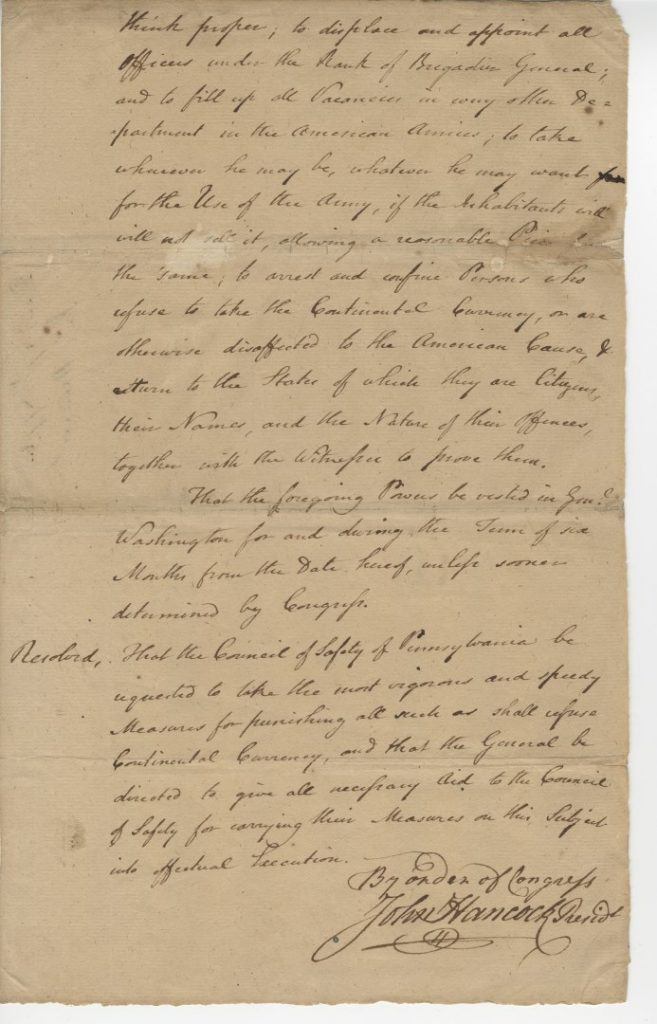 think proper; to displace and appoint all
Officers under the Rank of Brigadier General;
and to fill up all Vacancies in every other De=
partment in the American Armies; to take
wherever he may be, whatever he may want for
for the Use of the Army, if the Inhabitants will
will not sell it, allowing a reasonable Price for
the same; to arrest and confine Persons who
refuse to take the Continental Currency, or are
otherwise disaffected to the American Cause, &
return to the States of which they are Citizens,
their Names, and the Nature of their Offences,
together with the Witnesses to prove them.
That the foregoing Powers be vested in Genl.
Washington for and during the Term of six
Months from the Date hereof, unless sooner
determined by Congress.
Resolved, That the Council of Safety of Pennsylvania be
requested to take the most vigorous and speedy
Measures for punishing all such as shall refuse
Continental Currency, and that the General be
directed to give all necessary Aid to the Council
of Safety for carrying their Measures on this Subject
into effectual Execution.
By order of Congress
John Hancock Presidt